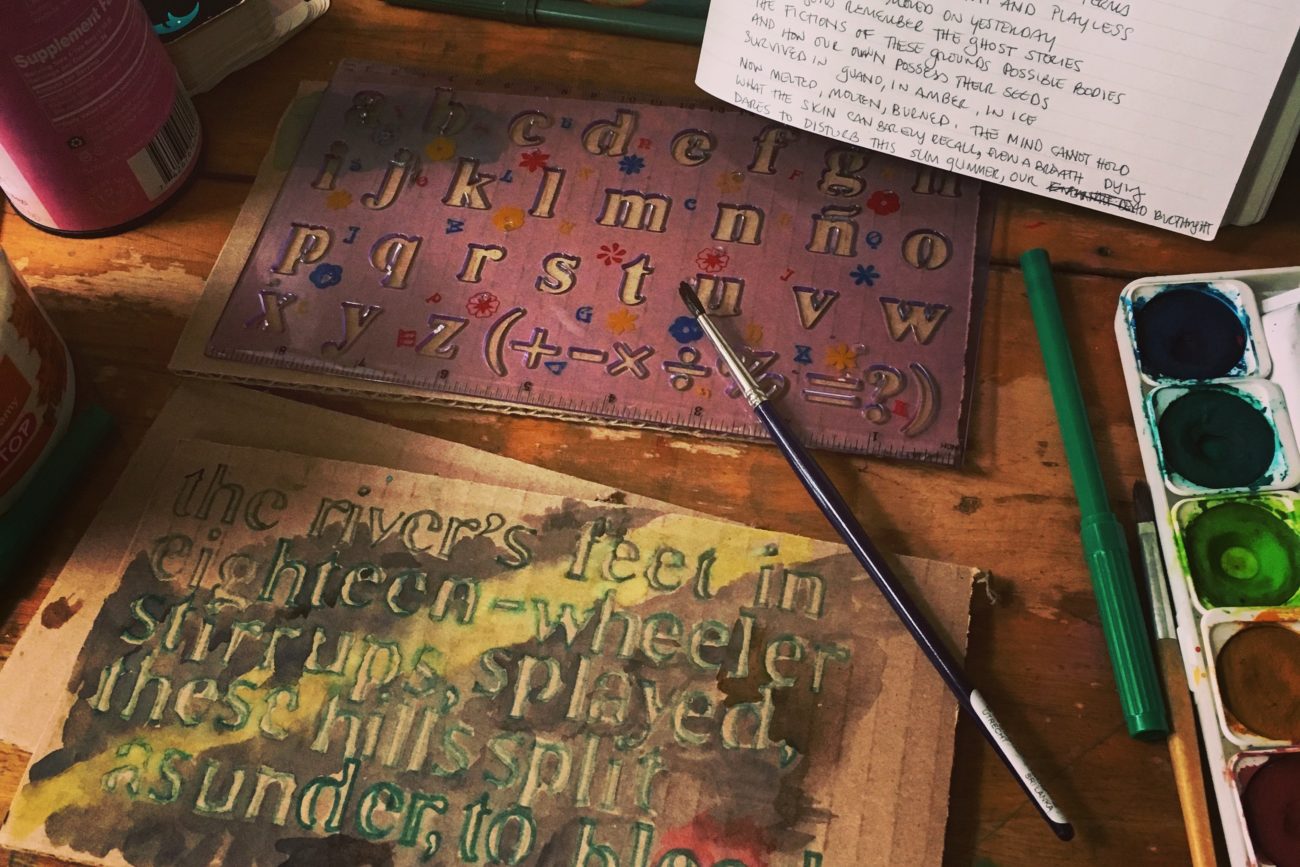 Supplement Fa
TOP
AND PLAYLESS
ON YESTERDAY
REMEMBER THE GHOST STORIES
THE FICTIONS OF THESE GROUNDS POSSIBLE BODIES
AND HOW OUR OWN POSSESS THEIR SEEDS
SURVIVED IN GUANO, IN AMBER, IN ICE
NOW MELTED, MOLTEN, BURNED. THE MIND CANNOT HOLD
WHAT THE SKIN CAN BARELY RECALL, EVEN A BREATH DYING
DARES TO DISTURB THIS SLIM GLIMMER, OUR BIRTHRIGHT
a b c d e f g h
i j k l m n ñ o
p q r s t u v w
x y z (+-×÷%=?)
the river's feet in
eighteen-wheeler
stirrups, splayed,
these hills split
asunder, to
UTRECHT
SRI LANKA